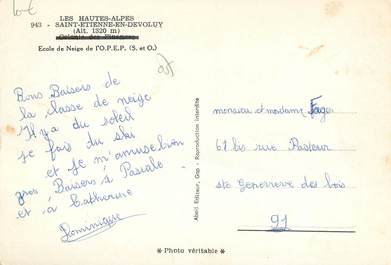 LES HAUTES-ALPES
943 - SAINT-ETIENNE-EN-DEVOLUY
(Alt. 1320 m)
Colonie des
Ecole de Neige de l'O.P.E.P. (S. et O.)
Bons Baisers de
la classe de neige
Il y a du soleil
je fais du ski
et je m'amuse bien
gros Baisers à Pascale
et à Catherine
Dominique
Abeil Editeur, Gap - Reproduction interdite
monsieur et madame Fages
61 bis rue Pasteur
ste Genevieve des bois
91
* Photo véritable *